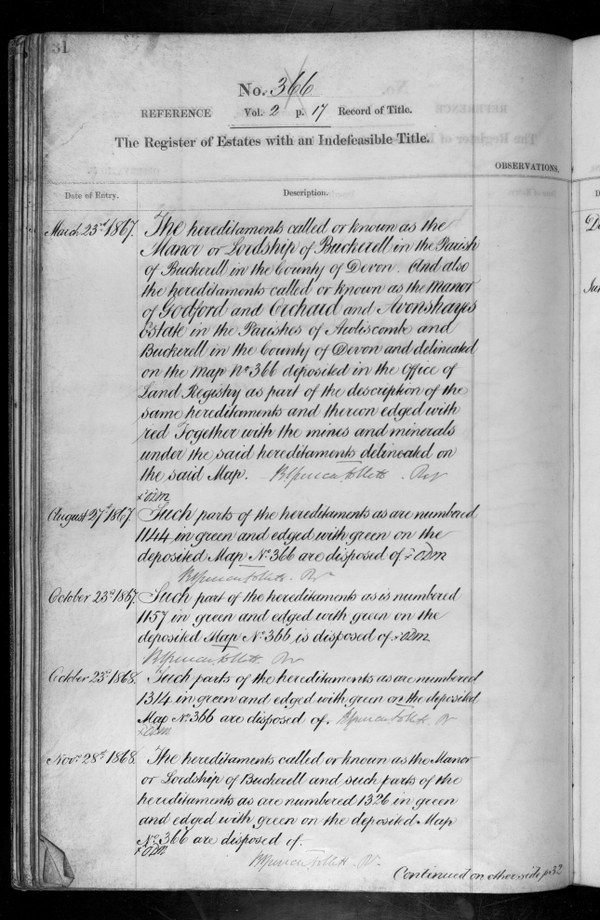 31
No. 366
REFERENCE Vol. 2 p. 17 Record of Title.
The Register of Estates with an Indefeasible Title.
OBSERVATIONS.
Date of Entry. Description.
March 23rd 1867. The hereditaments called or known as the
Manor or Lordship of Buckerell in the Parish
of Buckerell in the County of Devon. And also
the hereditaments called or known as the Manor
of Godford and Orchard and Avonshayes
Estate in the Parishes of Awliscombe and
Buckerell in the County of Devon and delineated
on the Map No 366 deposited in the Office of
Land Registry as part of the description of the
same hereditaments and thereon edged with
red Together with the mines and minerals
under the said hereditaments delineated on
the said Map. Follett. Rr
August 27th 1867 Such parts of the hereditaments as are numbered
1144 in green and edged with green on the
deposited Map No. 366 are disposed of.
Follett. Rr
October 23rd 1867. Such part of the hereditaments as is numbered
1157 in green and edged with green on the
deposited Map No. 366 is disposed of.
Follett. Rr
October 23rd 1868. Such parts of the hereditaments as are numbered
1314 in green and edged with green on the deposited
Map No. 366 are disposed of. Follett Rr
Novr. 28th 1868. The hereditaments called or known as the Manor
or Lordship of Buckerell and such parts of the
hereditaments as are numbered 1326 in green
and edged with green on the deposited Map
No. 366 are disposed of.
Follett. Rr.
Continued on other side p. 32